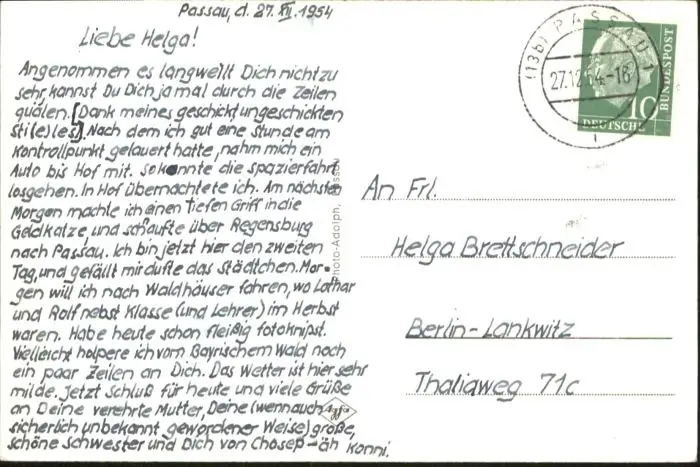 Passau, d. 27. XII. 1954
Liebe Helga!
Angenommen es langweilt Dich nicht zu
sehr, kannst Du Dich ja mal durch die Zeilen
quälen. [Dank meines geschickt ungeschickten
Sti(e)les]. Nach dem ich gut eine Stunde am
Kontrollpunkt gelauert hatte, nahm mich ein
Auto bis Hof mit. So konnte die Spazierfahrt
losgehen. In Hof übernachtete ich. Am nächsten
Morgen machte ich einen tiefen Griff in die
Geldkatze, und schaufte über Regensburg
nach Passau. Ich bin jetzt hier den zweiten
Tag, und gefällt mir dufte das Städtchen. Mor-
gen will ich nach Waldhäuser fahren, wo Lothar
und Rolf nebst Klasse (und Lehrer) im Herbst
waren. Habe heute schon fleißig fotoknipst.
Vielleicht holpere ich vom Bayrischem Wald noch
ein paar Zeilen an Dich. Das Wetter ist hier sehr
milde. Jetzt Schluß für heute und viele Grüße
an Deine verehrte Mutter, Deine (wenn auch
sicherlich unbekannt gewordener Weise) große,
schöne Schwester und Dich von Chosep-äh Konni.
Photo-Adolph, Passau
Agfa
(13b) PASSAU 1
27.12.54.-18
DEUTSCHE
BUNDESPOST
10
An Frl.
Helga Brettschneider
Berlin-Lankwitz
Thaliaweg 71c